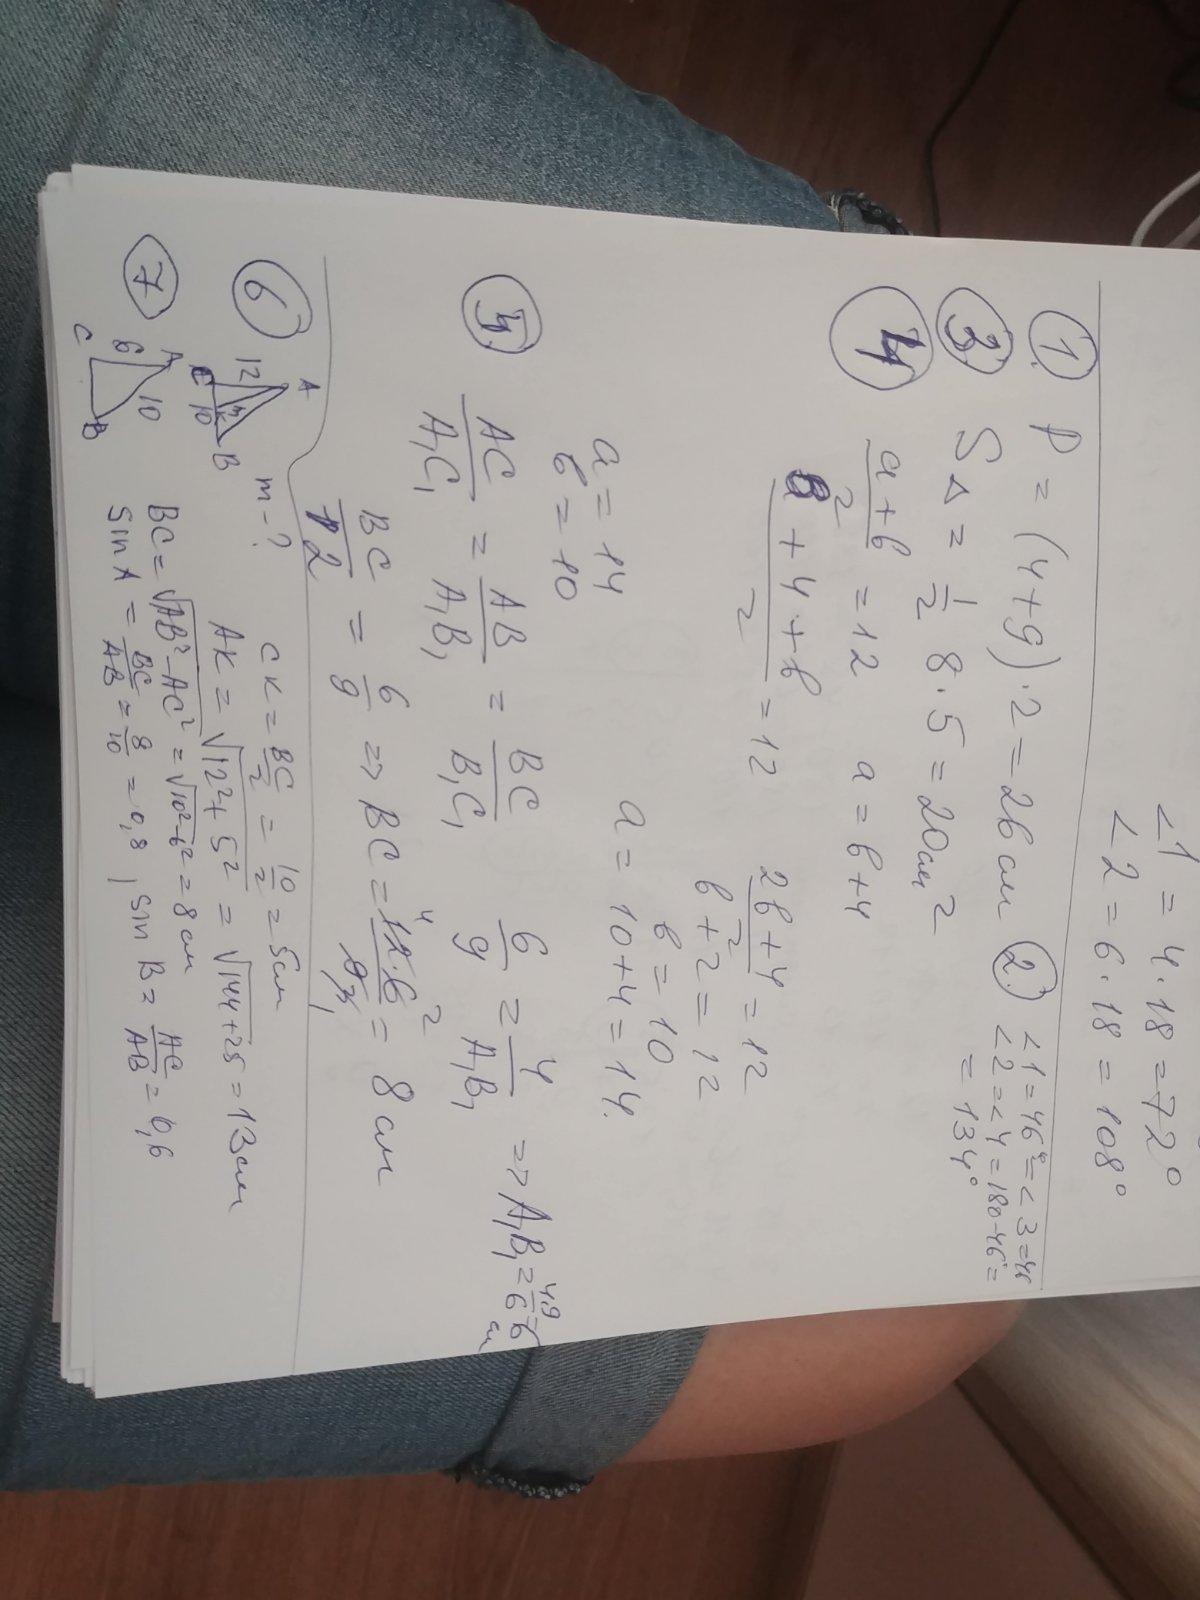 ∠1 = 4·18 = 72°
∠2 = 6·18 = 108°
1. P = (4+9)·2 = 26 см
2. ∠1 = 46° = ∠3 = 46
∠2 = ∠4 = 180-46° =
= 134°
3. S∆ = 1/2 8·5 = 20см²
4. (a+b)/2 = 12 a = b+4
(b+4+b)/2 = 12
(2b+4)/2 = 12
b+2 = 12
b = 10
a = 10+4 = 14.
a = 14
b = 10
5. AC/A₁C₁ = AB/A₁B₁ = BC/B₁C₁ 6/9 = 4/A₁B₁ => A₁B₁ = 4·9/6 = 6 см
BC/12 = 6/9 => BC = 12·6/9 = 8 см
4 2
3 1
6 A 12 C 10 B K m-?
CK = BC/2 = 10/2 = 5см
AK = √12²+5² = √144+25 = 13см
7 A 6 10 C B
BC = √AB²-AC² = √10²-6² = 8 см
Sin A = BC/AB = 8/10 = 0,8, sin B = AC/AB = 0,6